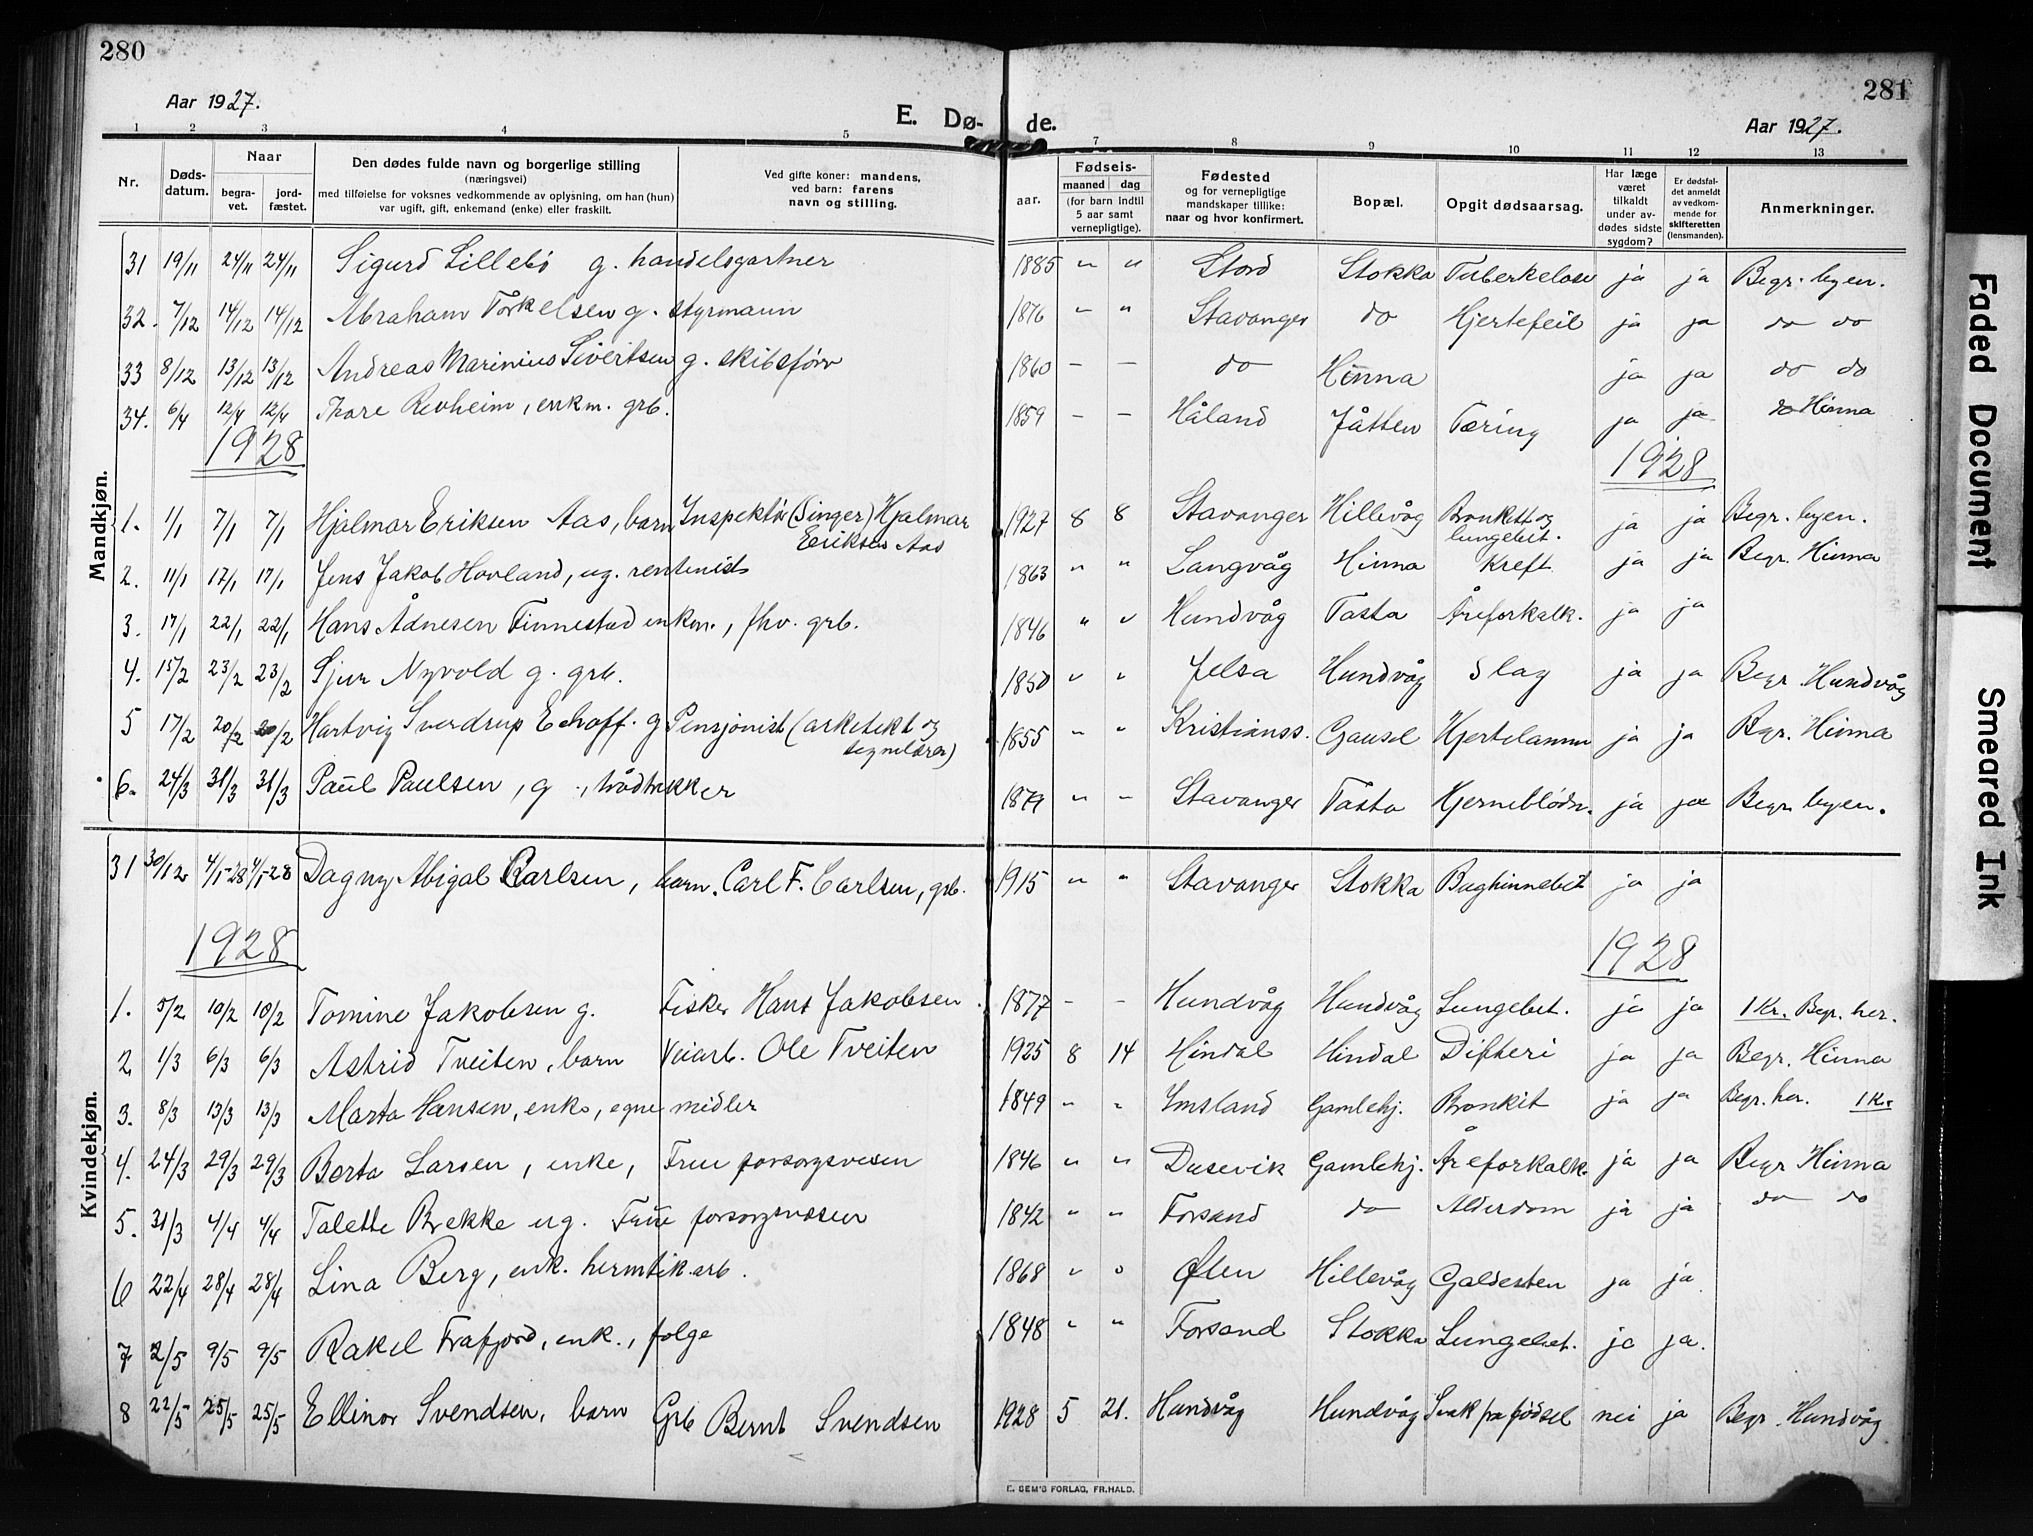 280
281
Aar 1927.
E. Dø- de.
Aar 1927.
1 2 3 4 5 7 8 9 10 11 12 13
Nr.
Døds-
datum.
Naar
begra-
vet.
jord-
fæstet.
Den dødes fulde navn og borgerlige stilling
(næringsvei)
med tilføielse for voksnes vedkommende av oplysning, om han (hun)
var ugift, gift, enkemand (enke) eller fraskilt.
Ved gifte koner: mandens,
ved barn: farens
navn og stilling.
Fødsels-
aar.
maaned dag
(for barn indtil
5 aar samt
vernepligtige).
Fødested
og for vernepligtige
mandskaper tillike:
naar og hvor konfirmert.
Bopæl.
Opgit dødsaarsag.
Har læge
været
tilkaldt
under av-
dødes sidste
sygdom?
Er dødsfal-
det anmeldt
av vedkom-
mende for
skifteretten
(lensmanden).
Anmerkninger.
Mandkjøn.
31 19/11 24/11 24/11 Sigurd Lillebø g. handelsgartner 1885 " " Stord Stokka Tuberkelose ja ja Begr. byen.
32. 7/12 14/12 14/12 Abraham Torkelsen g. styrmann 1876 " " Stavanger do Hjertefeil ja ja do do
33 8/12 13/12 13/12 Andreas Marinius Sivertsen g. skibsførr 1860 – – do Hinna ja ja do do
34. 6/4 12/4 12/4 Thore Revheim, enkm. grb. 1859 – – Håland Jåtten Tæring ja ja do Hinna
1928 1928
1. 1/1 7/1 7/1 Hjalmar Eriksen Aas, barn Inspektør (Singer) Hjalmar
Eriksen Aas 1927 8 8 Stavanger Hillevåg Bronkitt og
lungebet. ja ja Begr. byen.
2. 11/1 17/1 17/1 Jens Jakob Hovland, ug. rentenist 1863 " " Langvåg Hinna Kreft ja ja Begr. Hinna
3. 17/1 22/1 22/1 Hans Ådnesen Finnestad enkm., fhv. grb. 1846 " " Hundvåg Tasta Åreforkalk. ja ja
4. 15/2 23/2 23/2 Sjur Nyvold g. grb. 1850 " " Jelsa Hundvåg Slag ja ja Begr. Hundvåg
5 17/2 20/2 20/2 Hartvig Sverdrup Echoff. g Pensjonist (arkitekt og
tegnelærer) 1855 " " Kristianss. Gausel Hjertelamm ja ja Begr. Hinna
6. 24/3 31/3 31/3 Paul Paulsen, g., trådtrekker 1879 " – Stavanger Tasta Hjerneblødn. ja ja Begr. byen.
Kvindekjøn.
31 30/12 4/1-28 4/1-28 Dagny Abigal Carlsen, barn. Carl F. Carlsen, grb. 1915 " " Stavanger Stokka Bughinnebet ja ja
1928 1928
1. 5/2 10/2 10/2 Tomine Jakobsen g. Fisker Hans Jakobsen 1877 – – Hundvåg Hundvåg Lungebet. ja ja 1 Kr. Begr. her.
2 1/3 6/3 6/3 Astrid Tveiten, barn Veiarb. Ole Tveiten 1925 8 14 Hindal Hindal Difteri ja ja Begr. Hinna
3. 8/3 13/3 13/3 Marta Hansen, enke, egne midler 1849 " " Imsland Gamlehj. Bronkit ja ja Begr. her. 1 Kr
4. 24/3 29/3 29/3 Berta Larsen, enke, Frue forsorgsvesen 1846 " " Dusevik Gamlehj. Åreforkalk. ja ja Begr Hinna
5. 31/3 4/4 4/4 Talette Brekke ug. Frue forsorgsvesen 1842 " " Forsand do Alderdom ja ja do do
6 22/4 28/4 28/4 Lina Berg, enk. hermtik.arb. 1868 " " Ølen Hillevåg Galdesten ja ja
7 2/5 9/5 9/5 Rakel Frafjord, enk., følge 1848 " " Forsand Stokka Lungebet. ja ja.
8 22/5 25/5 25/5 Ellinor Svendsen, barn Grb Bernt Svendsen 1928 5 21. Hundvåg Hundvåg Svak fra fødsel nei ja Begr. Hundvåg
E. SEM'S FORLAG, FR.HALD.
Faded Document
Smeared Ink